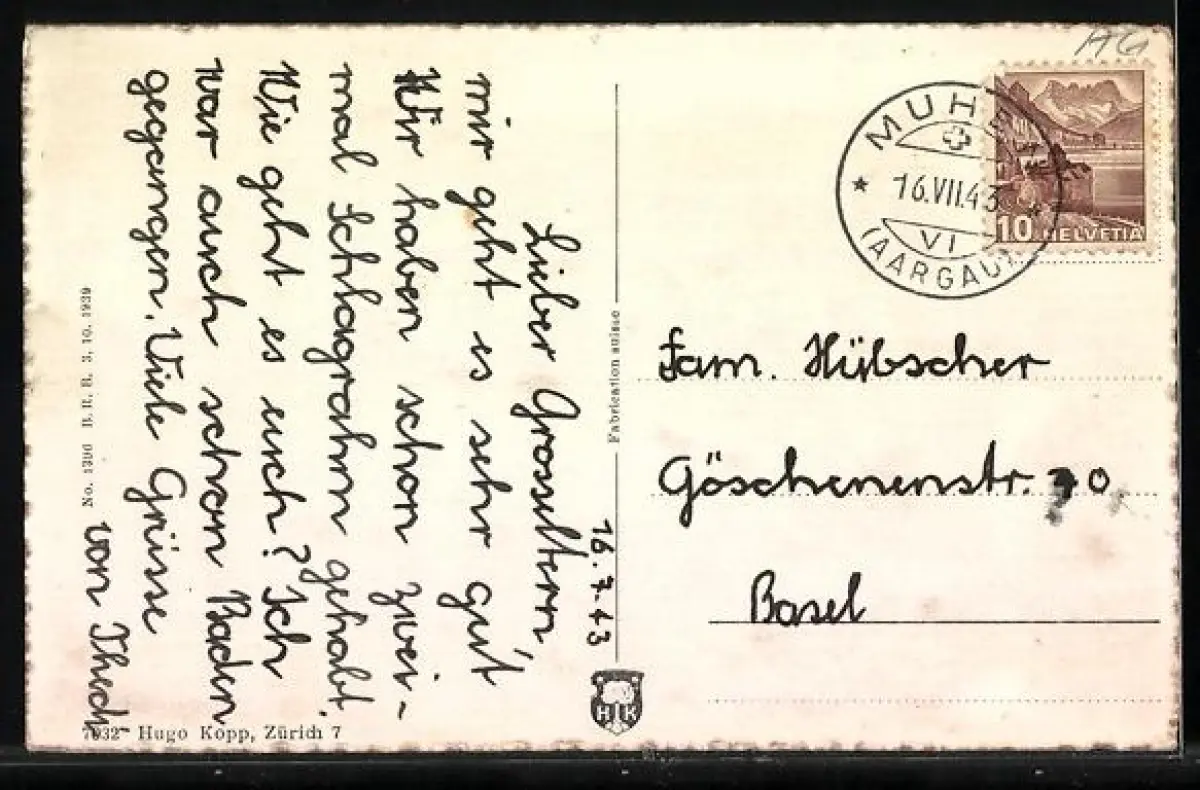 16.7.43
Lieber Grosseltern,
mir geht es sehr gut
Wir haben schon zwei-
mal Schlagrahm gehabt.
Wie geht es euch? Ich
war auch schon Baden
gegangen. Viele Grüsse
von
No. 1390 B.R.B. 3. 10. 1939
7932 Hugo Kopp, Zürich 7
Fabrication suisse
HK
AG
MUHEN
16.VII.43
VI
(AARGAU)
10 HELVETIA
Fam. Hübscher
Göschenenstr. 70
Basel